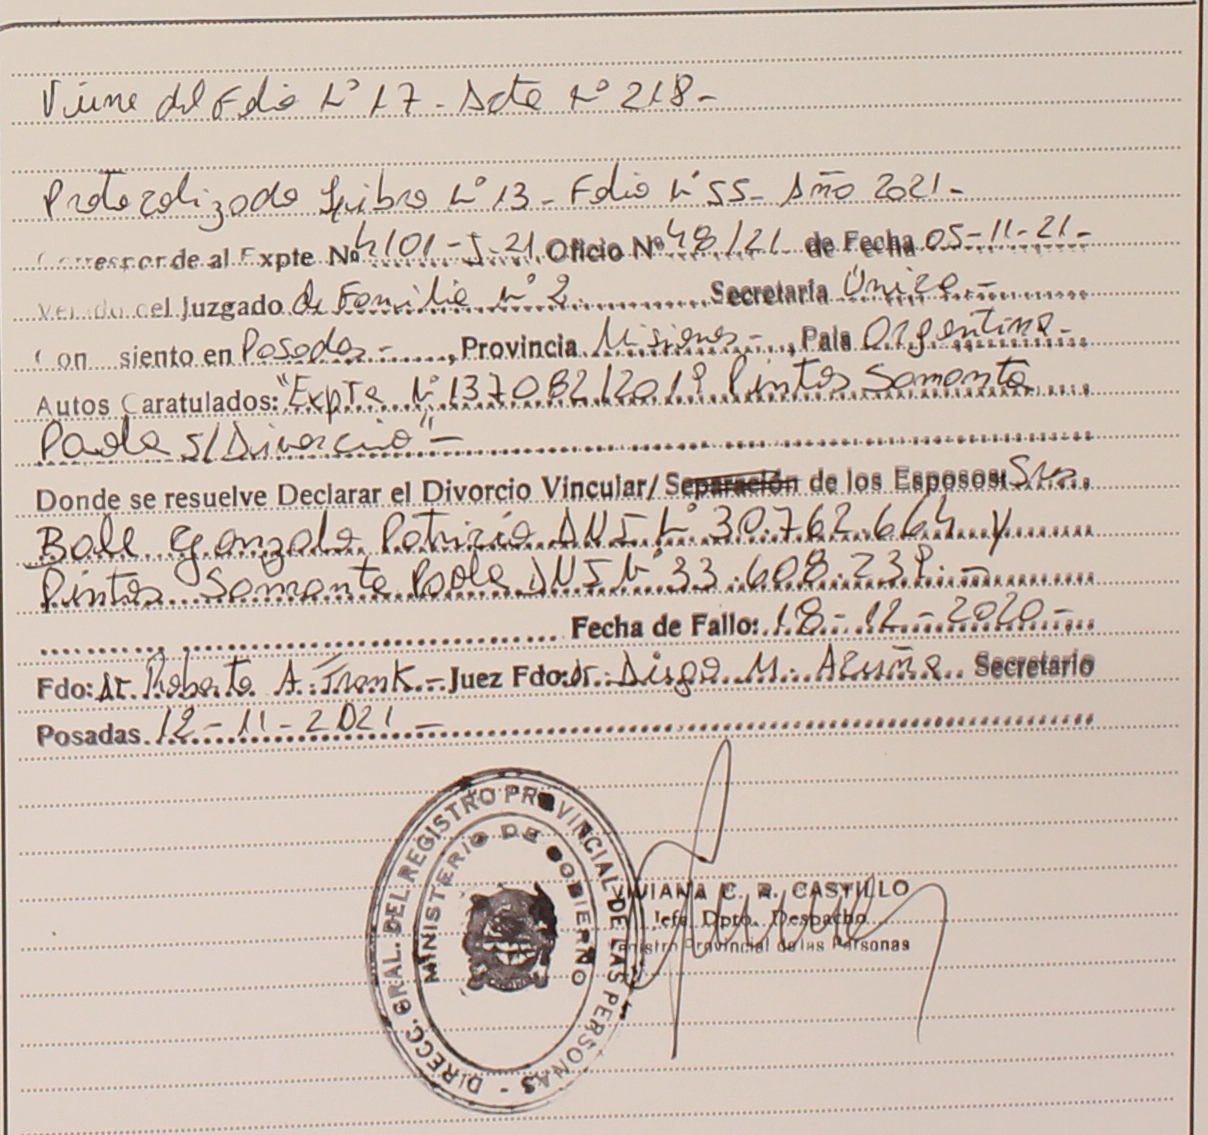 Viene del Folio N° 17 - Acta N° 218 -
Protocolizado Libro N° 13 - Folio N° 55 - Año 2021 -
Corresponde al Expte Nº 4101-J-21 Oficio Nº 48/21 de Fecha 05-11-21 -
Venido del Juzgado de Familia N° 2 Secretaria Única -
Con asiento en Posadas - , Provincia Misiones - , Pais Argentina -
Autos Caratulados: "Expte N° 137082/2019 Pintos Samanta
Paola s/Divorcio" -
Donde se resuelve Declarar el Divorcio Vincular/ Separación de los Esposos: Sres
Gonzalo Patricio DNI N° 30.762.664 y
Pintos Samanta Paola DNI N° 33.608.239. -
Fecha de Fallo: 18-12-2020 -
Fdo: Dr. Roberto A. Frank. - Juez Fdo: Dr. Diego M. Acuña. Secretario
Posadas 12-11-2021 -
DIRECC. GRAL. DEL REGISTRO PROVINCIAL DE LAS PERSONAS -
MINISTERIO DE GOBIERNO
VIVIANA C. R. CASTILLO
Jefe Dpto. Despacho
Registro Provincial de las Personas